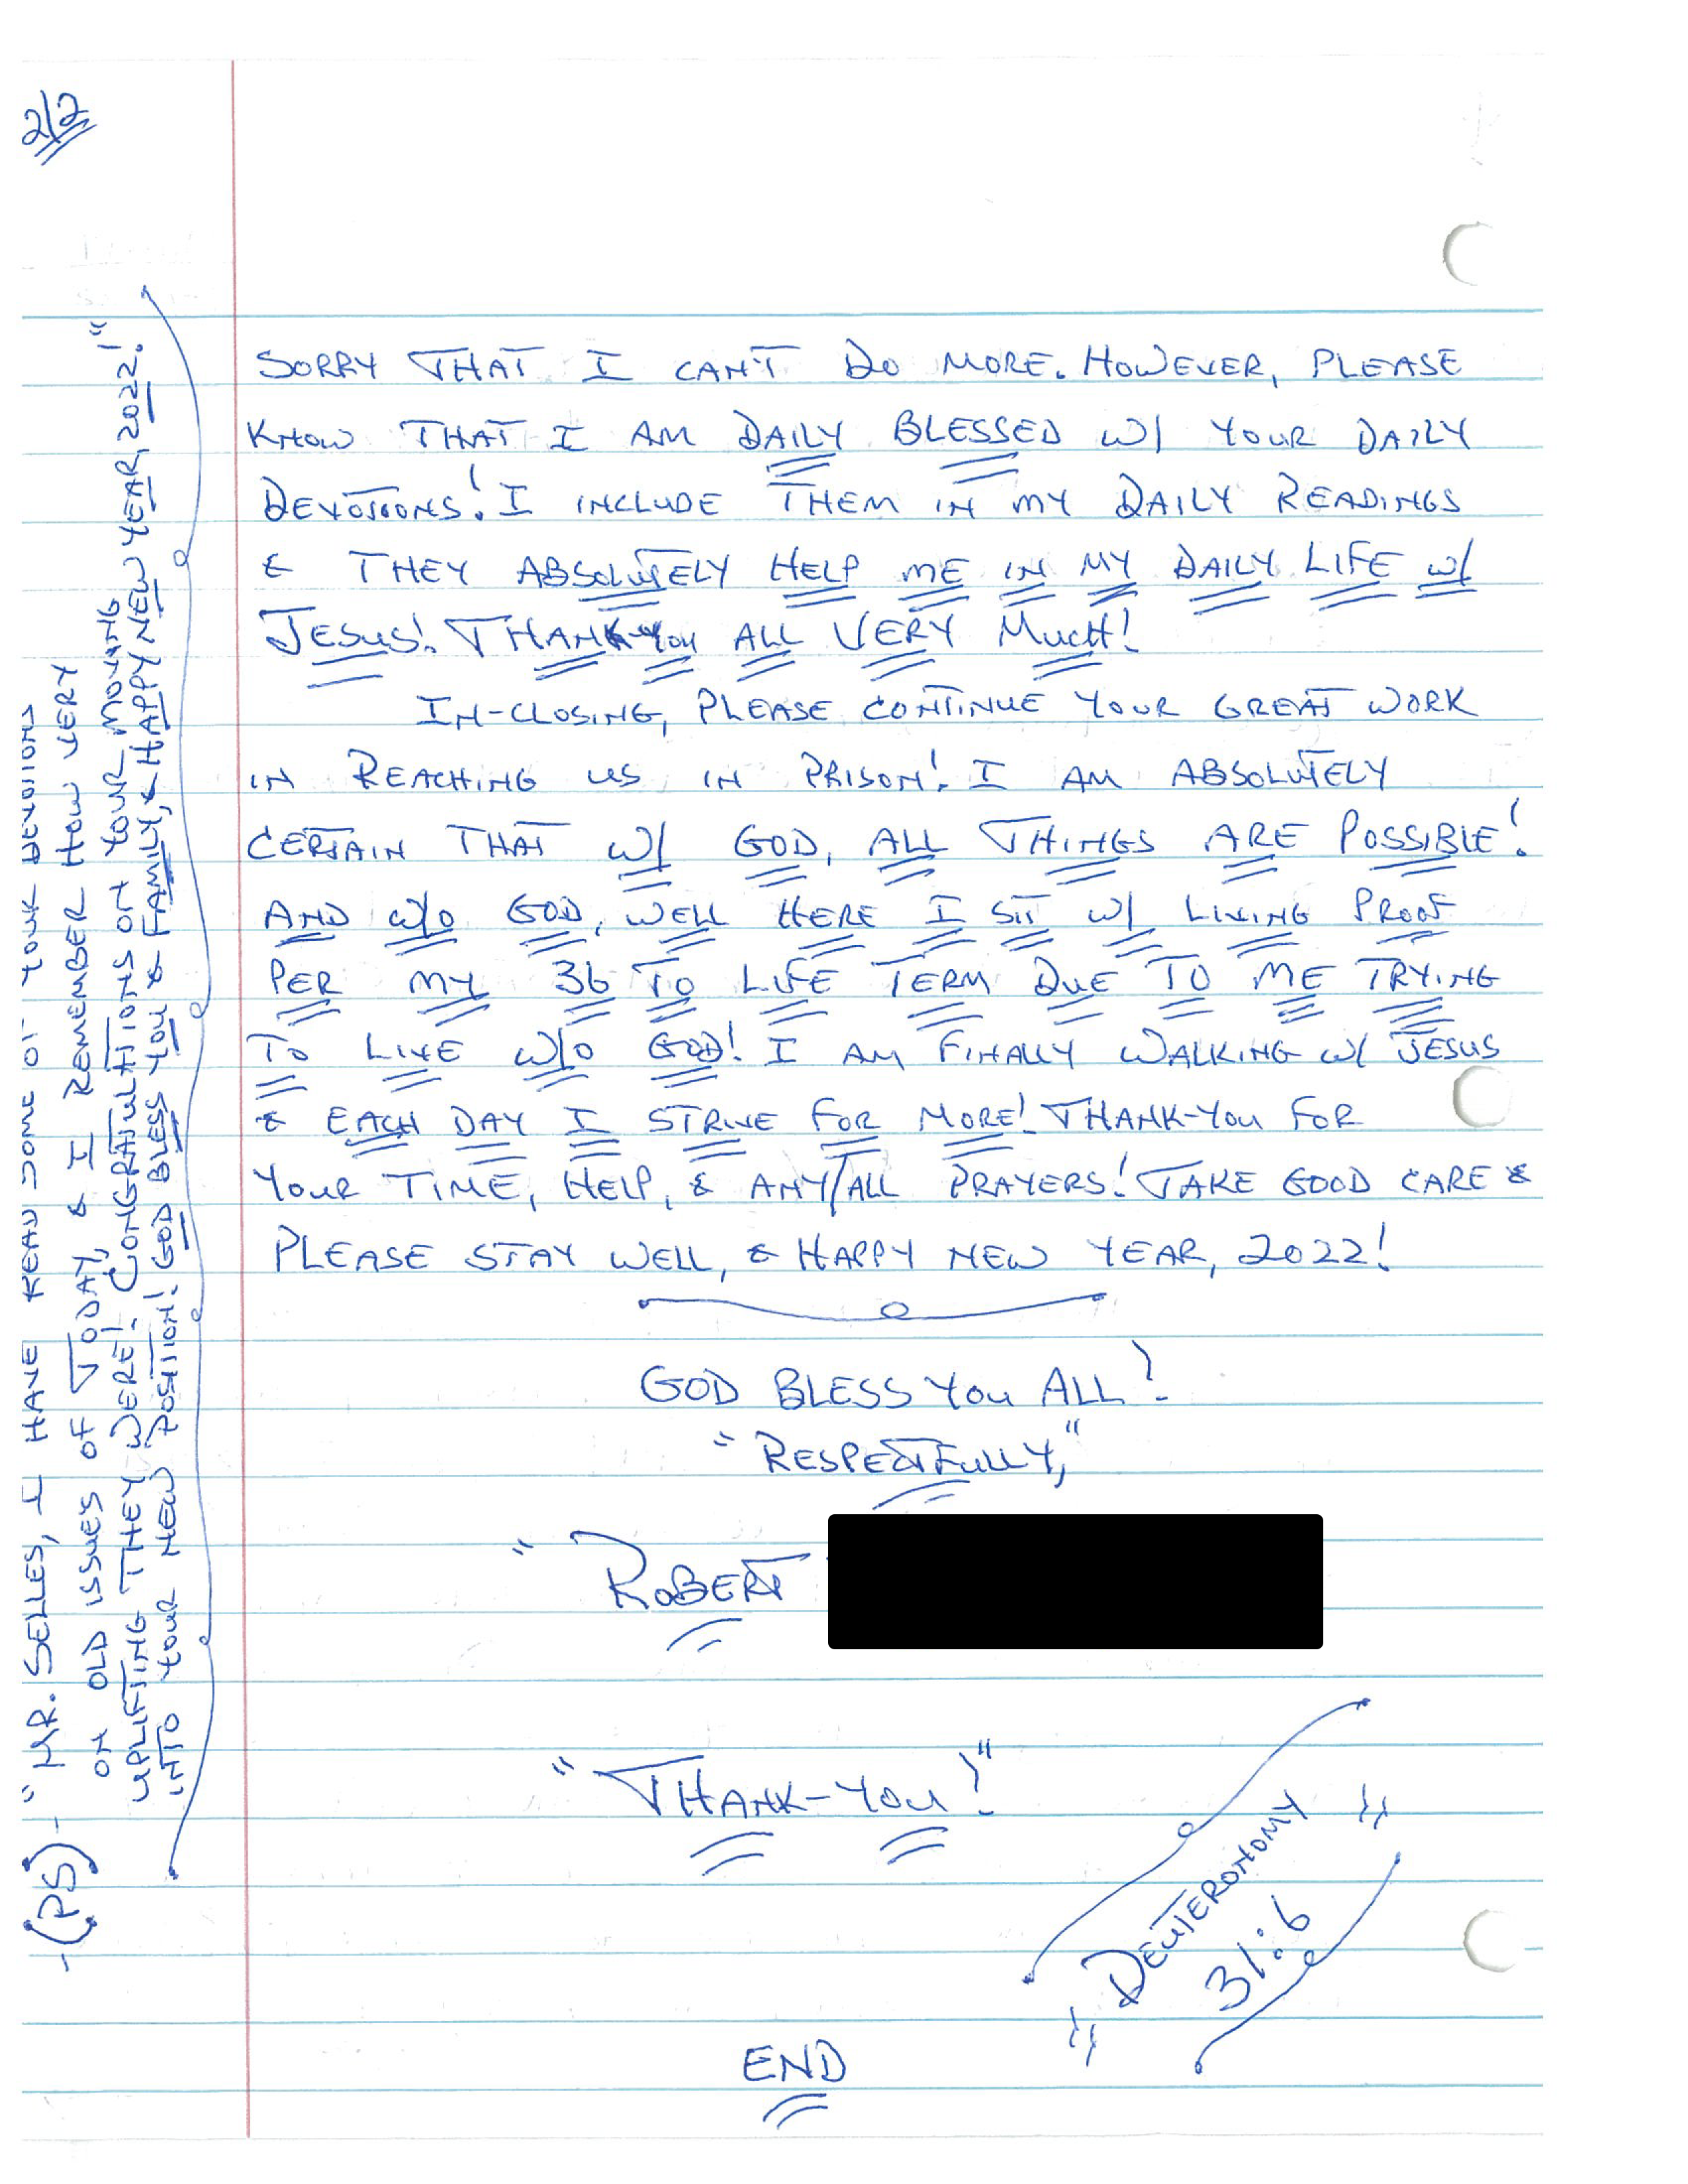 2/2
SORRY THAT I CAN'T DO MORE. HOWEVER, PLEASE
KNOW THAT I AM DAILY BLESSED W/ YOUR DAILY
DEVOTIONS! I INCLUDE THEM IN MY DAILY READINGS
& THEY ABSOLUTELY HELP ME IN MY DAILY LIFE W/
JESUS! THANK-YOU ALL VERY MUCH!
IN-CLOSING, PLEASE CONTINUE YOUR GREAT WORK
IN REACHING US IN PRISON! I AM ABSOLUTELY
CERTAIN THAT W/ GOD, ALL THINGS ARE POSSIBLE!
AND W/O GOD, WELL HERE I SIT W/ LIVING PROOF
PER MY 36 TO LIFE TERM DUE TO ME TRYING
TO LIVE W/O GOD! I AM FINALLY WALKING W/ JESUS
& EACH DAY I STRIVE FOR MORE! THANK-YOU FOR
YOUR TIME, HELP, & ANY/ALL PRAYERS! TAKE GOOD CARE &
PLEASE STAY WELL, & HAPPY NEW YEAR, 2022!
GOD BLESS YOU ALL!
"RESPECTFULLY,"
"ROBERT
"THANK-YOU!"
"DEUTERONOMY
31:6"
END
-(PS)- "MR. SELLES, I HAVE READ SOME OF YOUR DEVOTIONS
ON OLD ISSUES OF TODAY, & I REMEMBER HOW VERY
UPLIFTING THEY WERE! CONGRATULATIONS ON YOUR MOVING
INTO YOUR NEW POSITION! GOD BLESS YOU & FAMILY, & HAPPY NEW YEAR, 2022!"